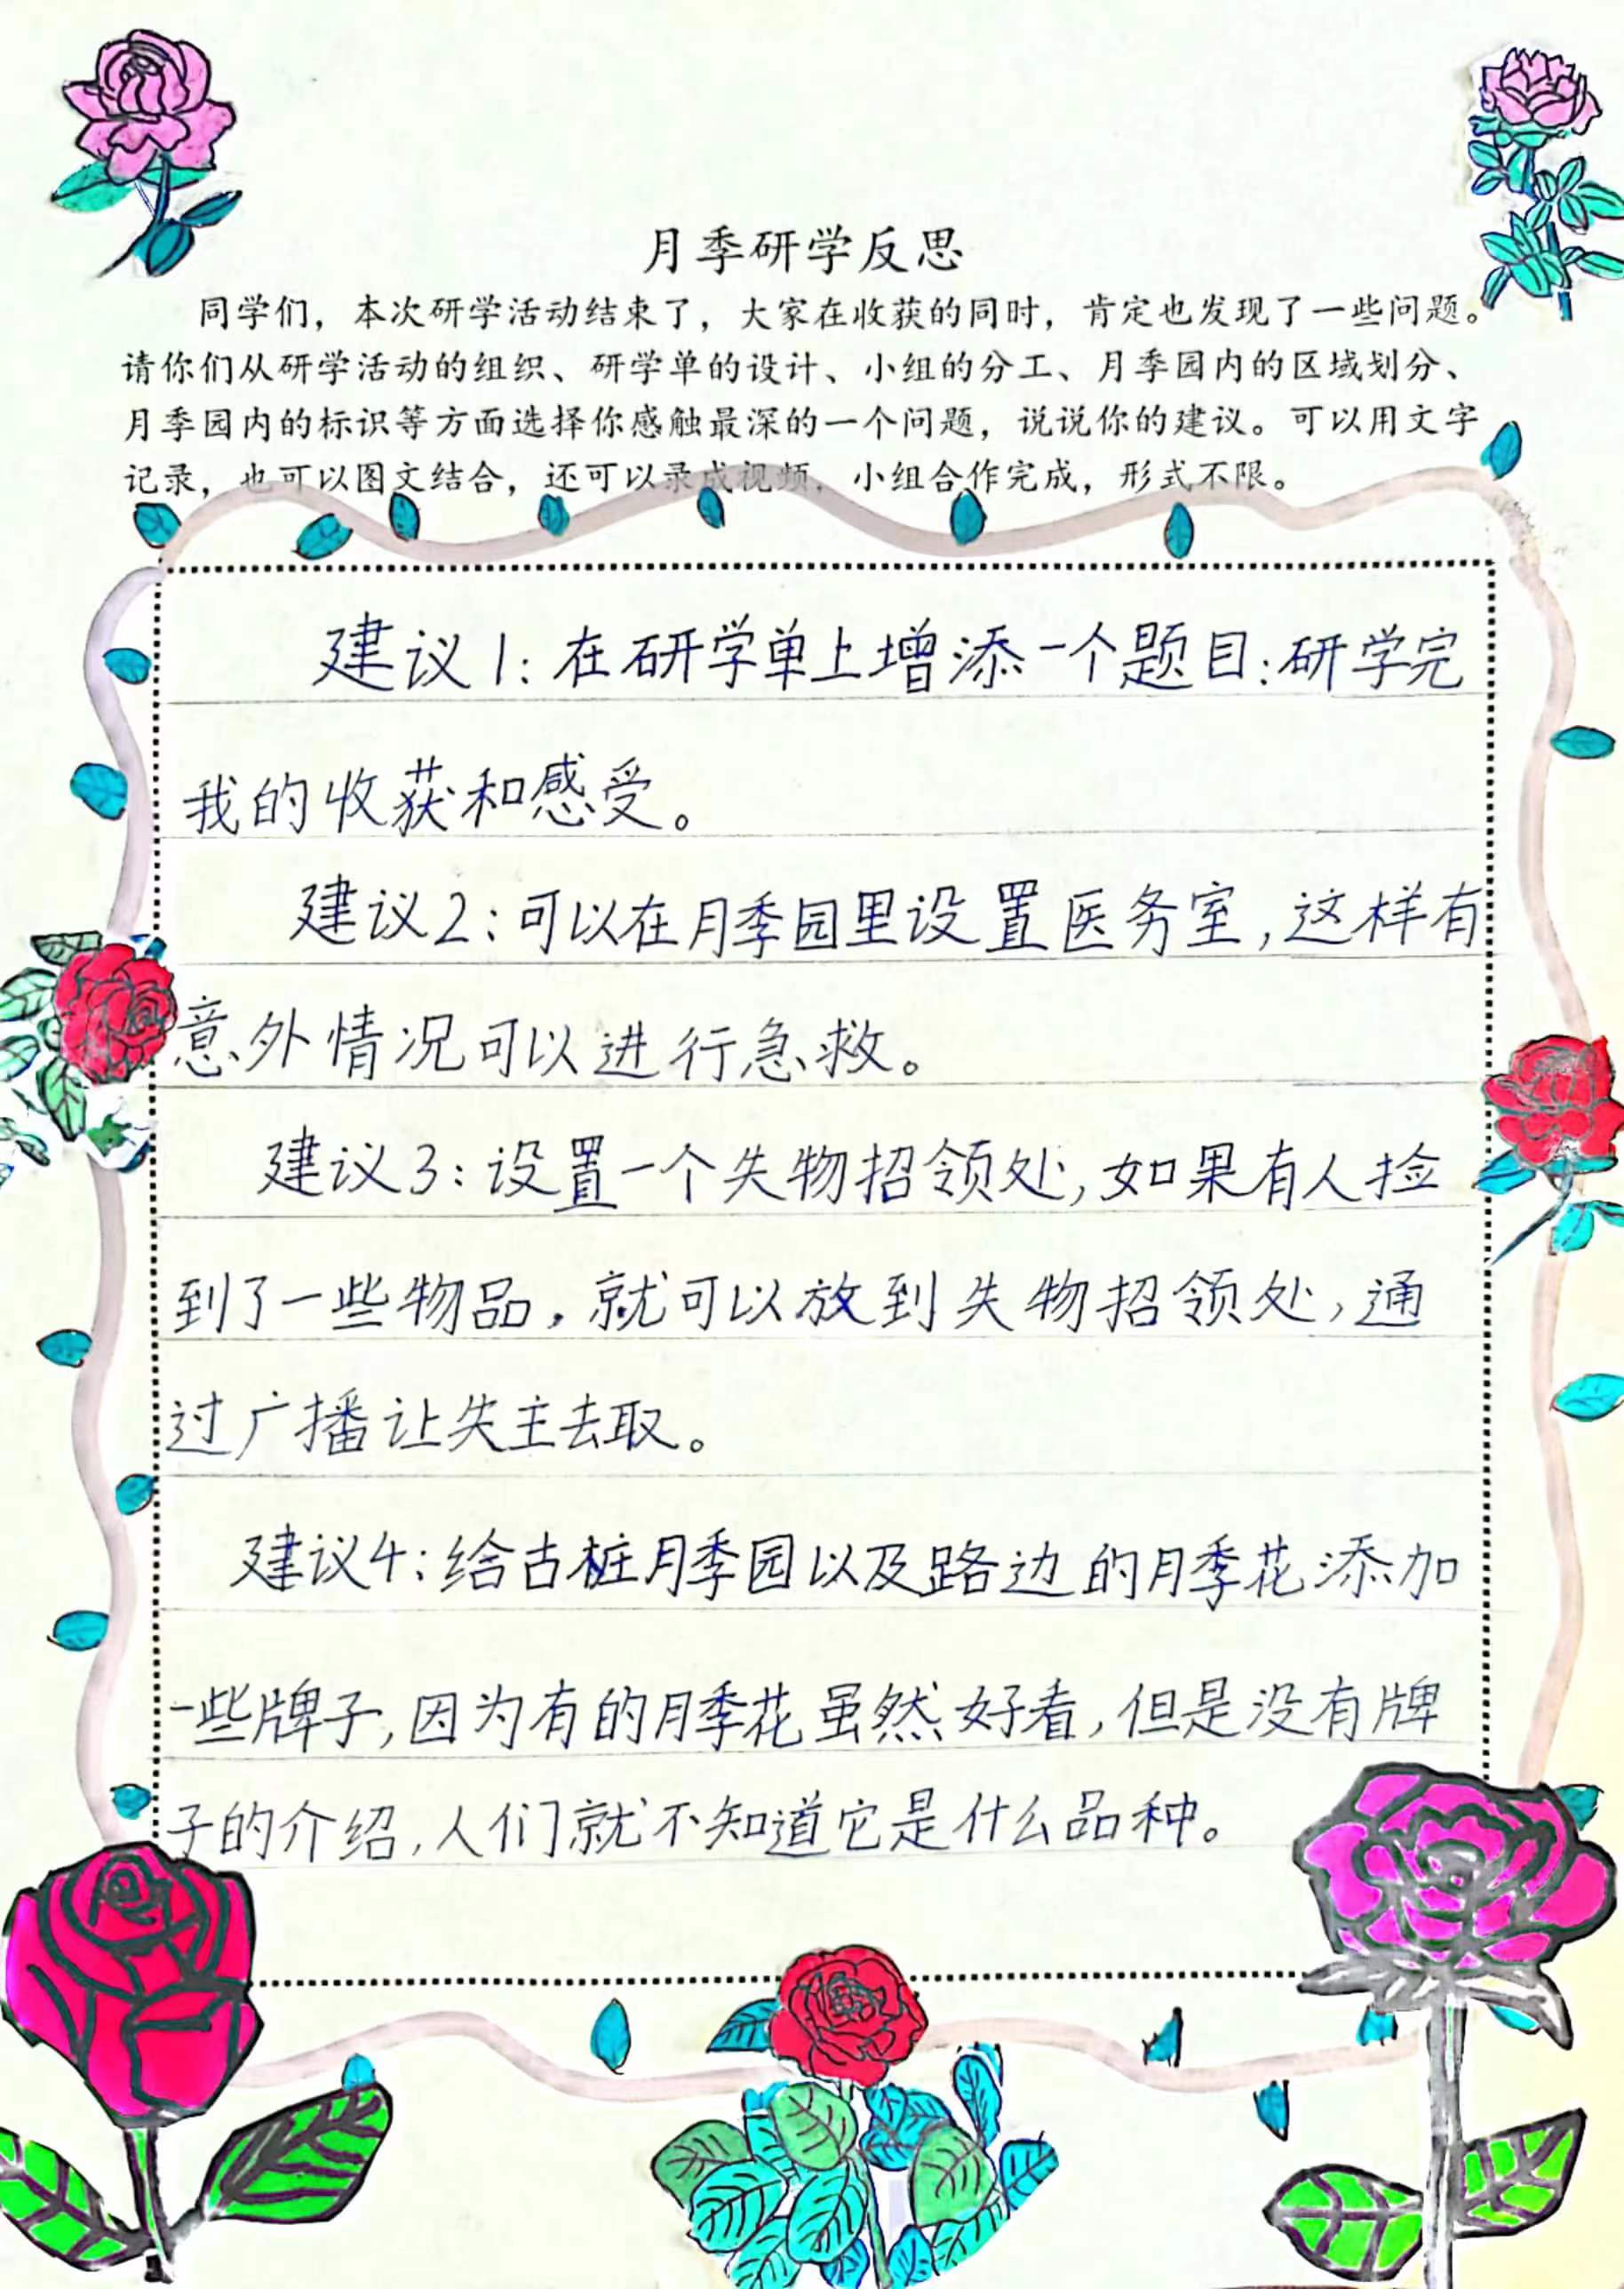 月季研学反思
同学们，本次研学活动结束了，大家在收获的同时，肯定也发现了一些问题。
请你们从研学活动的组织、研学单的设计、小组的分工、月季园内的区域划分、
月季园内的标识等方面选择你感触最深的一个问题，说说你的建议。可以用文字
记录，也可以图文结合，还可以录成视频，小组合作完成，形式不限。
建议1：在研学单上增添一个题目：研学完
我的收获和感受。
建议2：可以在月季园里设置医务室，这样有
意外情况可以进行急救。
建议3：设置一个失物招领处，如果有人捡
到了一些物品，就可以放到失物招领处，通
过广播让失主去取。
建议4：给古桩月季园以及路边的月季花添加
一些牌子，因为有的月季花虽然好看，但是没有牌
子的介绍，人们就不知道它是什么品种。